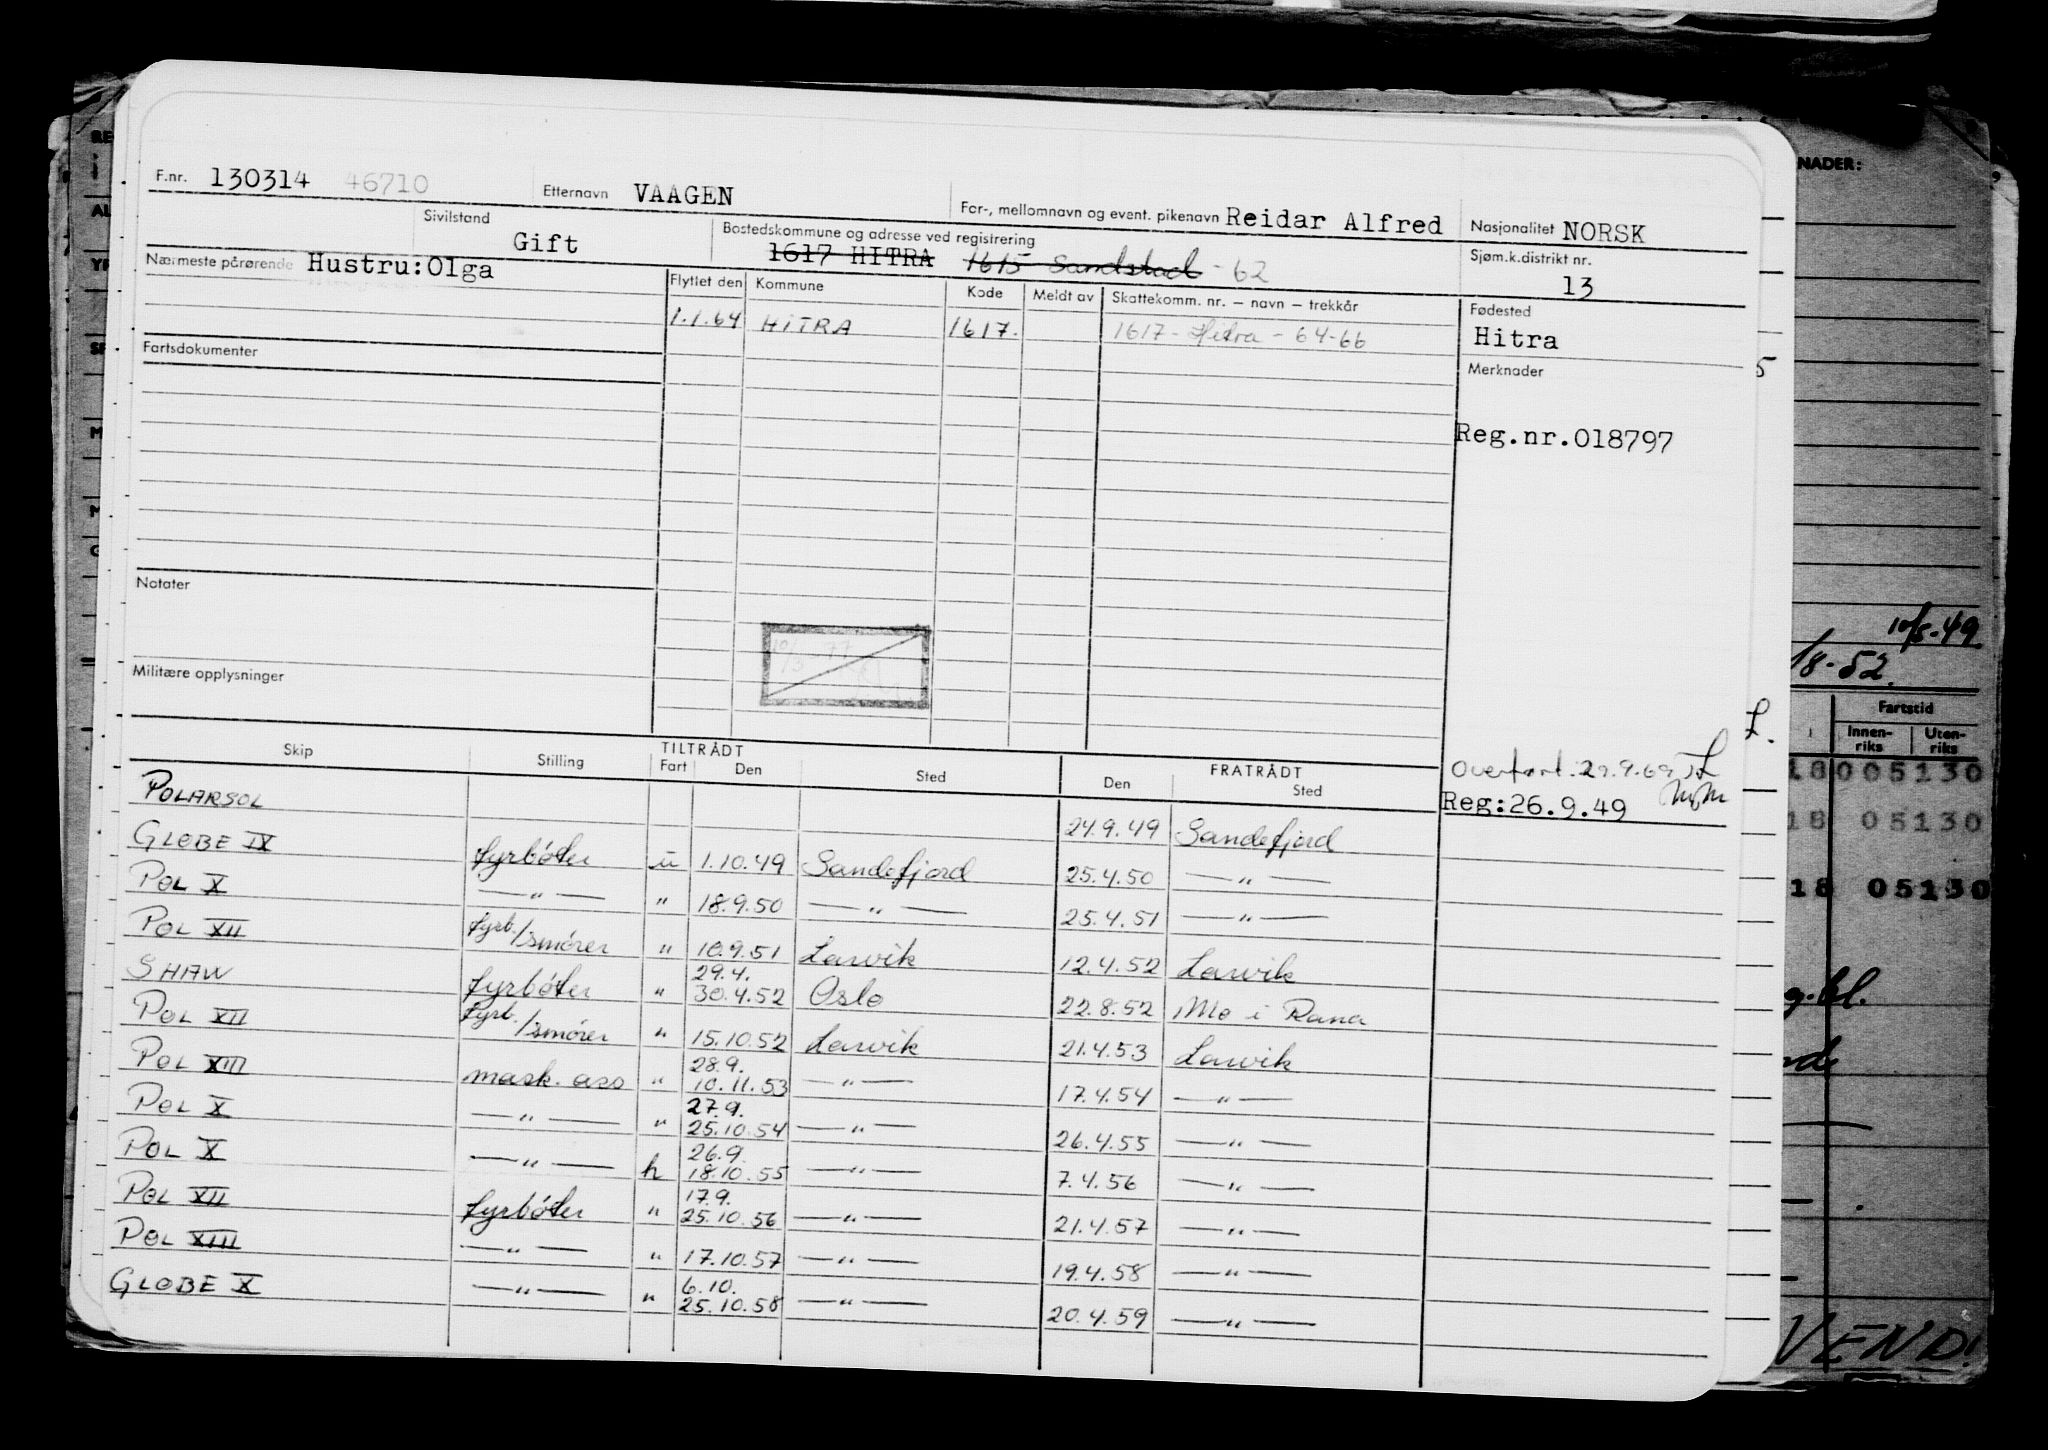 F.nr. 130314 46710 Etternavn VAAGEN For-, mellomnavn og event. pikenavn Reidar Alfred Nasjonalitet NORSK
Sivilstand Gift Bostedskommune og adresse ved registrering 1617 HITRA 1615 Sandstad - 62 Sjøm.k.distrikt nr. 13
Nærmeste pårørende Hustru: Olga Flyttet den Kommune Kode Meldt av Skattekomm. nr. – navn – trekkår Fødested
1.1.64 HITRA 1617. 1617 - Hitra - 64-66 Hitra
Fartsdokumenter Merknader
Reg.nr.018797
Notater
Militære opplysninger
Overført 29.9.69
Reg:26.9.49
Skip Stilling TILTRÅDT Fart Den Sted FRATRÅDT Den Sted
POLARSOL 24.9.49 Sandefjord
GLOBE IX fyrbøter u 1.10.49 Sandefjord 25.4.50 — " —
POL X — " — " 18.9.50 — " — 25.4.51 — " —
POL XII fyrb./smører " 10.9.51 Larvik 12.4.52 Larvik
SHAW fyrbøter " 29.4. 30.4.52 Oslo 22.8.52 Mo i Rana
POL XII fyrb./smører " 15.10.52 Larvik 21.4.53 Larvik
POL XIII mask. ass " 28.9. 10.11.53 — " — 17.4.54 — " —
POL X — " — " 27.9. 25.10.54 — " — 26.4.55 — " —
POL X — " — h 26.9. 18.10.55 — " — 7.4.56 — " —
POL XII fyrbøter " 17.9. 25.10.56 — " — 21.4.57 — " —
POL XIII — " — " 17.10.57 — " — 19.4.58 — " —
GLOBE X — " — " 6.10. 25.10.58 — " — 20.4.59 — " —
NADER:
10/5-49
/8-52.
Fartstid
Innenriks Utenriks
18 005130
18 05130
18 05130
VEND!